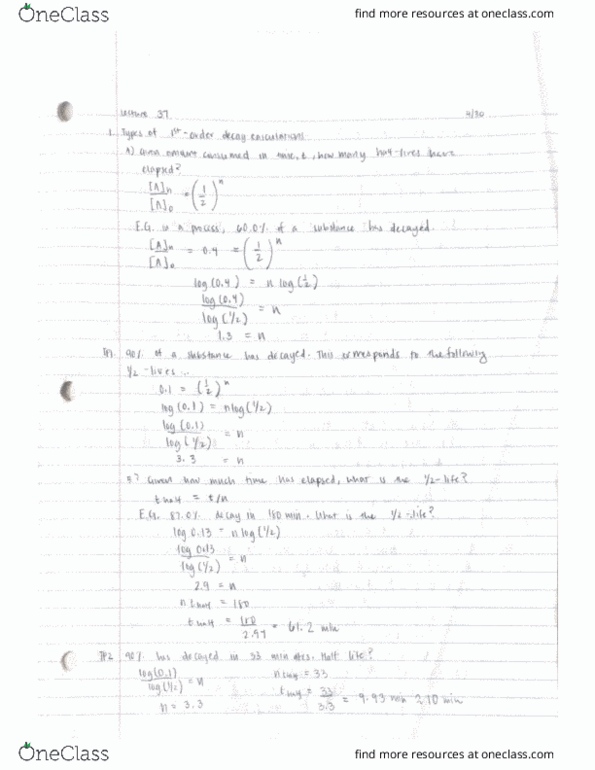 OneClass
find more resources at oneclass.com
Lecture 37 4/30
1. Types of 1st-order decay calculations.
A) Given amount consumed in time, t, how many half-lives have
elapsed?
[A]n / [A]o = (1/2)^n
E.G. in a process, 60.0% of a substance has decayed.
[A]n / [A]o = 0.4 = (1/2)^n
log(0.4) = n log(1/2)
log(0.4) / log(1/2) = n
1.3 = n
TP1. 90% of a substance has decayed. This corresponds to the following
1/2-lives...
0.1 = (1/2)^n
log(0.1) = nlog(1/2)
log(0.1) / log(1/2) = n
3.3 = n
Given how much time has elapsed, what is the 1/2-life?
t half = t/n
E.G. 87.0% decay in 180 min. What is the 1/2-life?
log 0.13 = n log(1/2)
log 0.13 / log(1/2) = n
2.9 = n
n t half = 180
t half = 180 / 2.94 = 61.2 min
TP2 90% has decayed in 33 minutes. Half life?
log(0.1) / log(1/2) = n n t half = 33
n = 3.3 t half = 33 / 3.3 = 9.93 min 10 min
OneClass
find more resources at oneclass.com